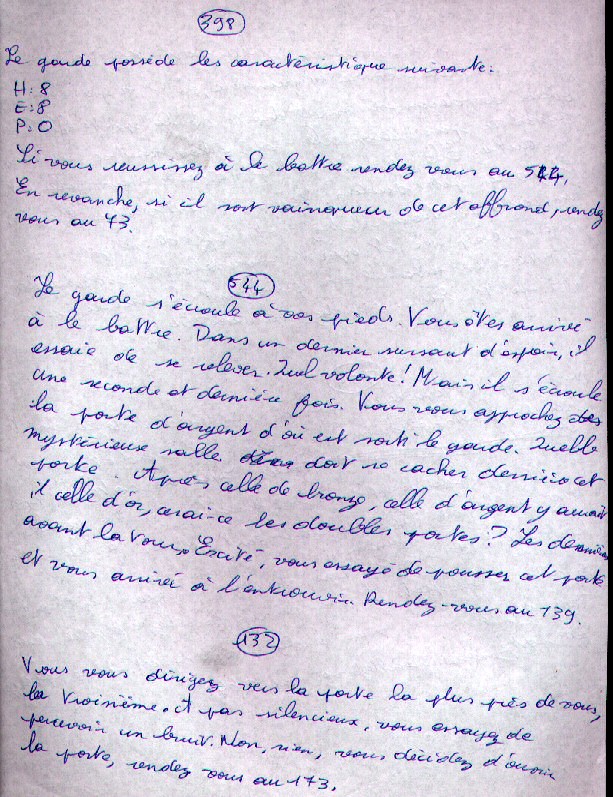 398
Le garde possède les caractéristique suivante:
H: 8
E: 8
P: 0
Si vous reussissez à le battre rendez vous au 544.
En revanche, si il sort vainqueur de cet affrond, rendez
vous au 73.
544
Le garde s'écroule à vos pieds. Vous êtes arrivé
à le battre. Dans un dernier sursaut d'espoir, il
essaie de se relever. Quel volonté! Mais il s'écroule
une seconde et dernière fois. Vous vous approchez de
la porte d'argent d'où est sorti le garde. Quelle
mystérieuse salle doit se cacher derrière cet
porte. Après celle de bronze, celle d'argent y aurait
il celle d'or, serai-ce les doubles portes? Les dernières
avant la tour. Excité, vous essayé de pousser cet porte
et vous arrivée à l'entrouvrir. Rendez-vous au 139.
132
Vous vous dirigez vers la porte la plus près de vous,
la troisième. A pas silencieux, vous essayez de
percevoir un bruit. Non, rien, vous décidez d'ouvrir
la porte, rendez vous au 173.